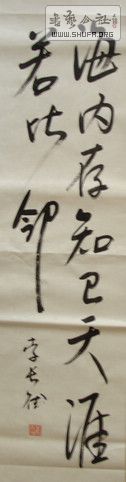 書艺公社
WWW.SHUFA.ORG
海内存知己天涯
若比邻
李长征